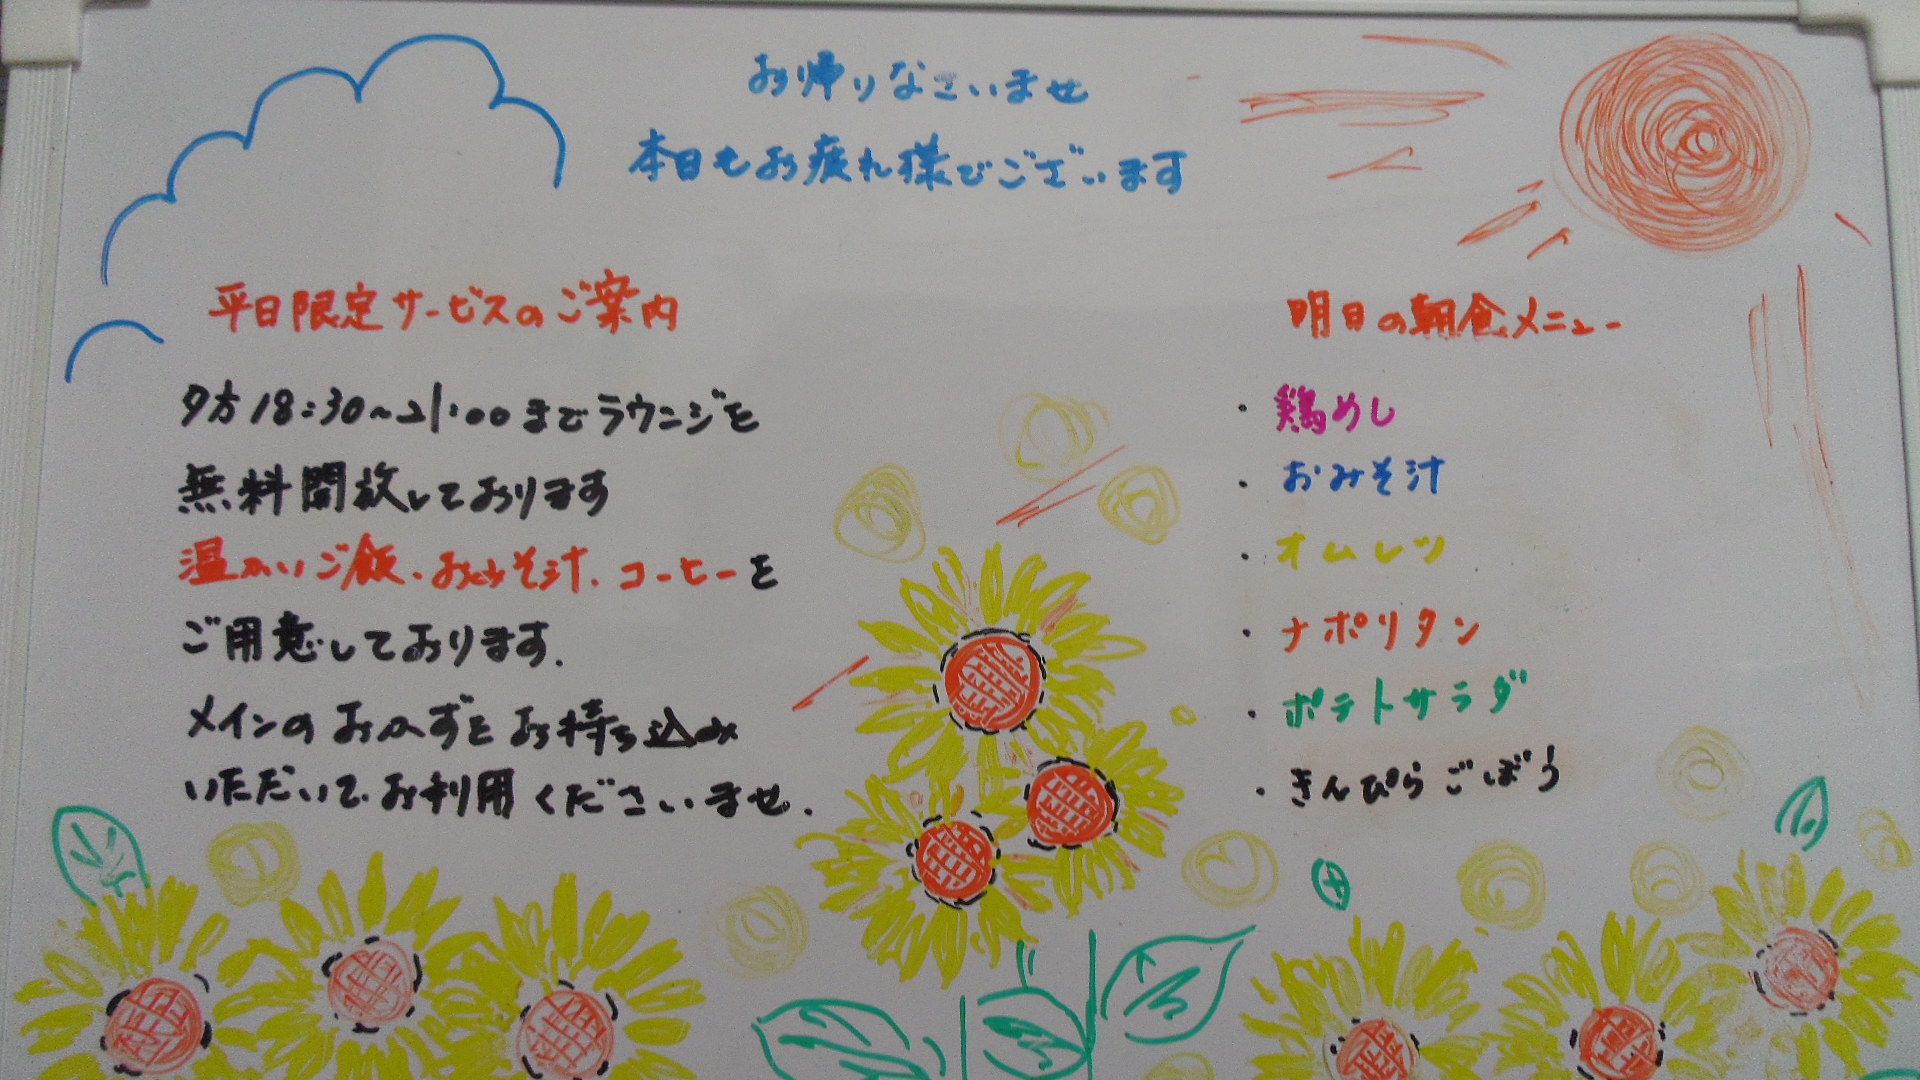 お帰りなさいませ
本日もお疲れ様でございます
平日限定サービスのご案内
夕方18:30～21:00までラウンジを
無料開放しております
温かいご飯、おみそ汁、コーヒーを
ご用意しております。
メインのおかずをお持ち込み
いただいて、お利用くださいませ。
明日の朝食メニュー
・鶏めし
・おみそ汁
・オムレツ
・ナポリタン
・ポテトサラダ
・きんぴらごぼう